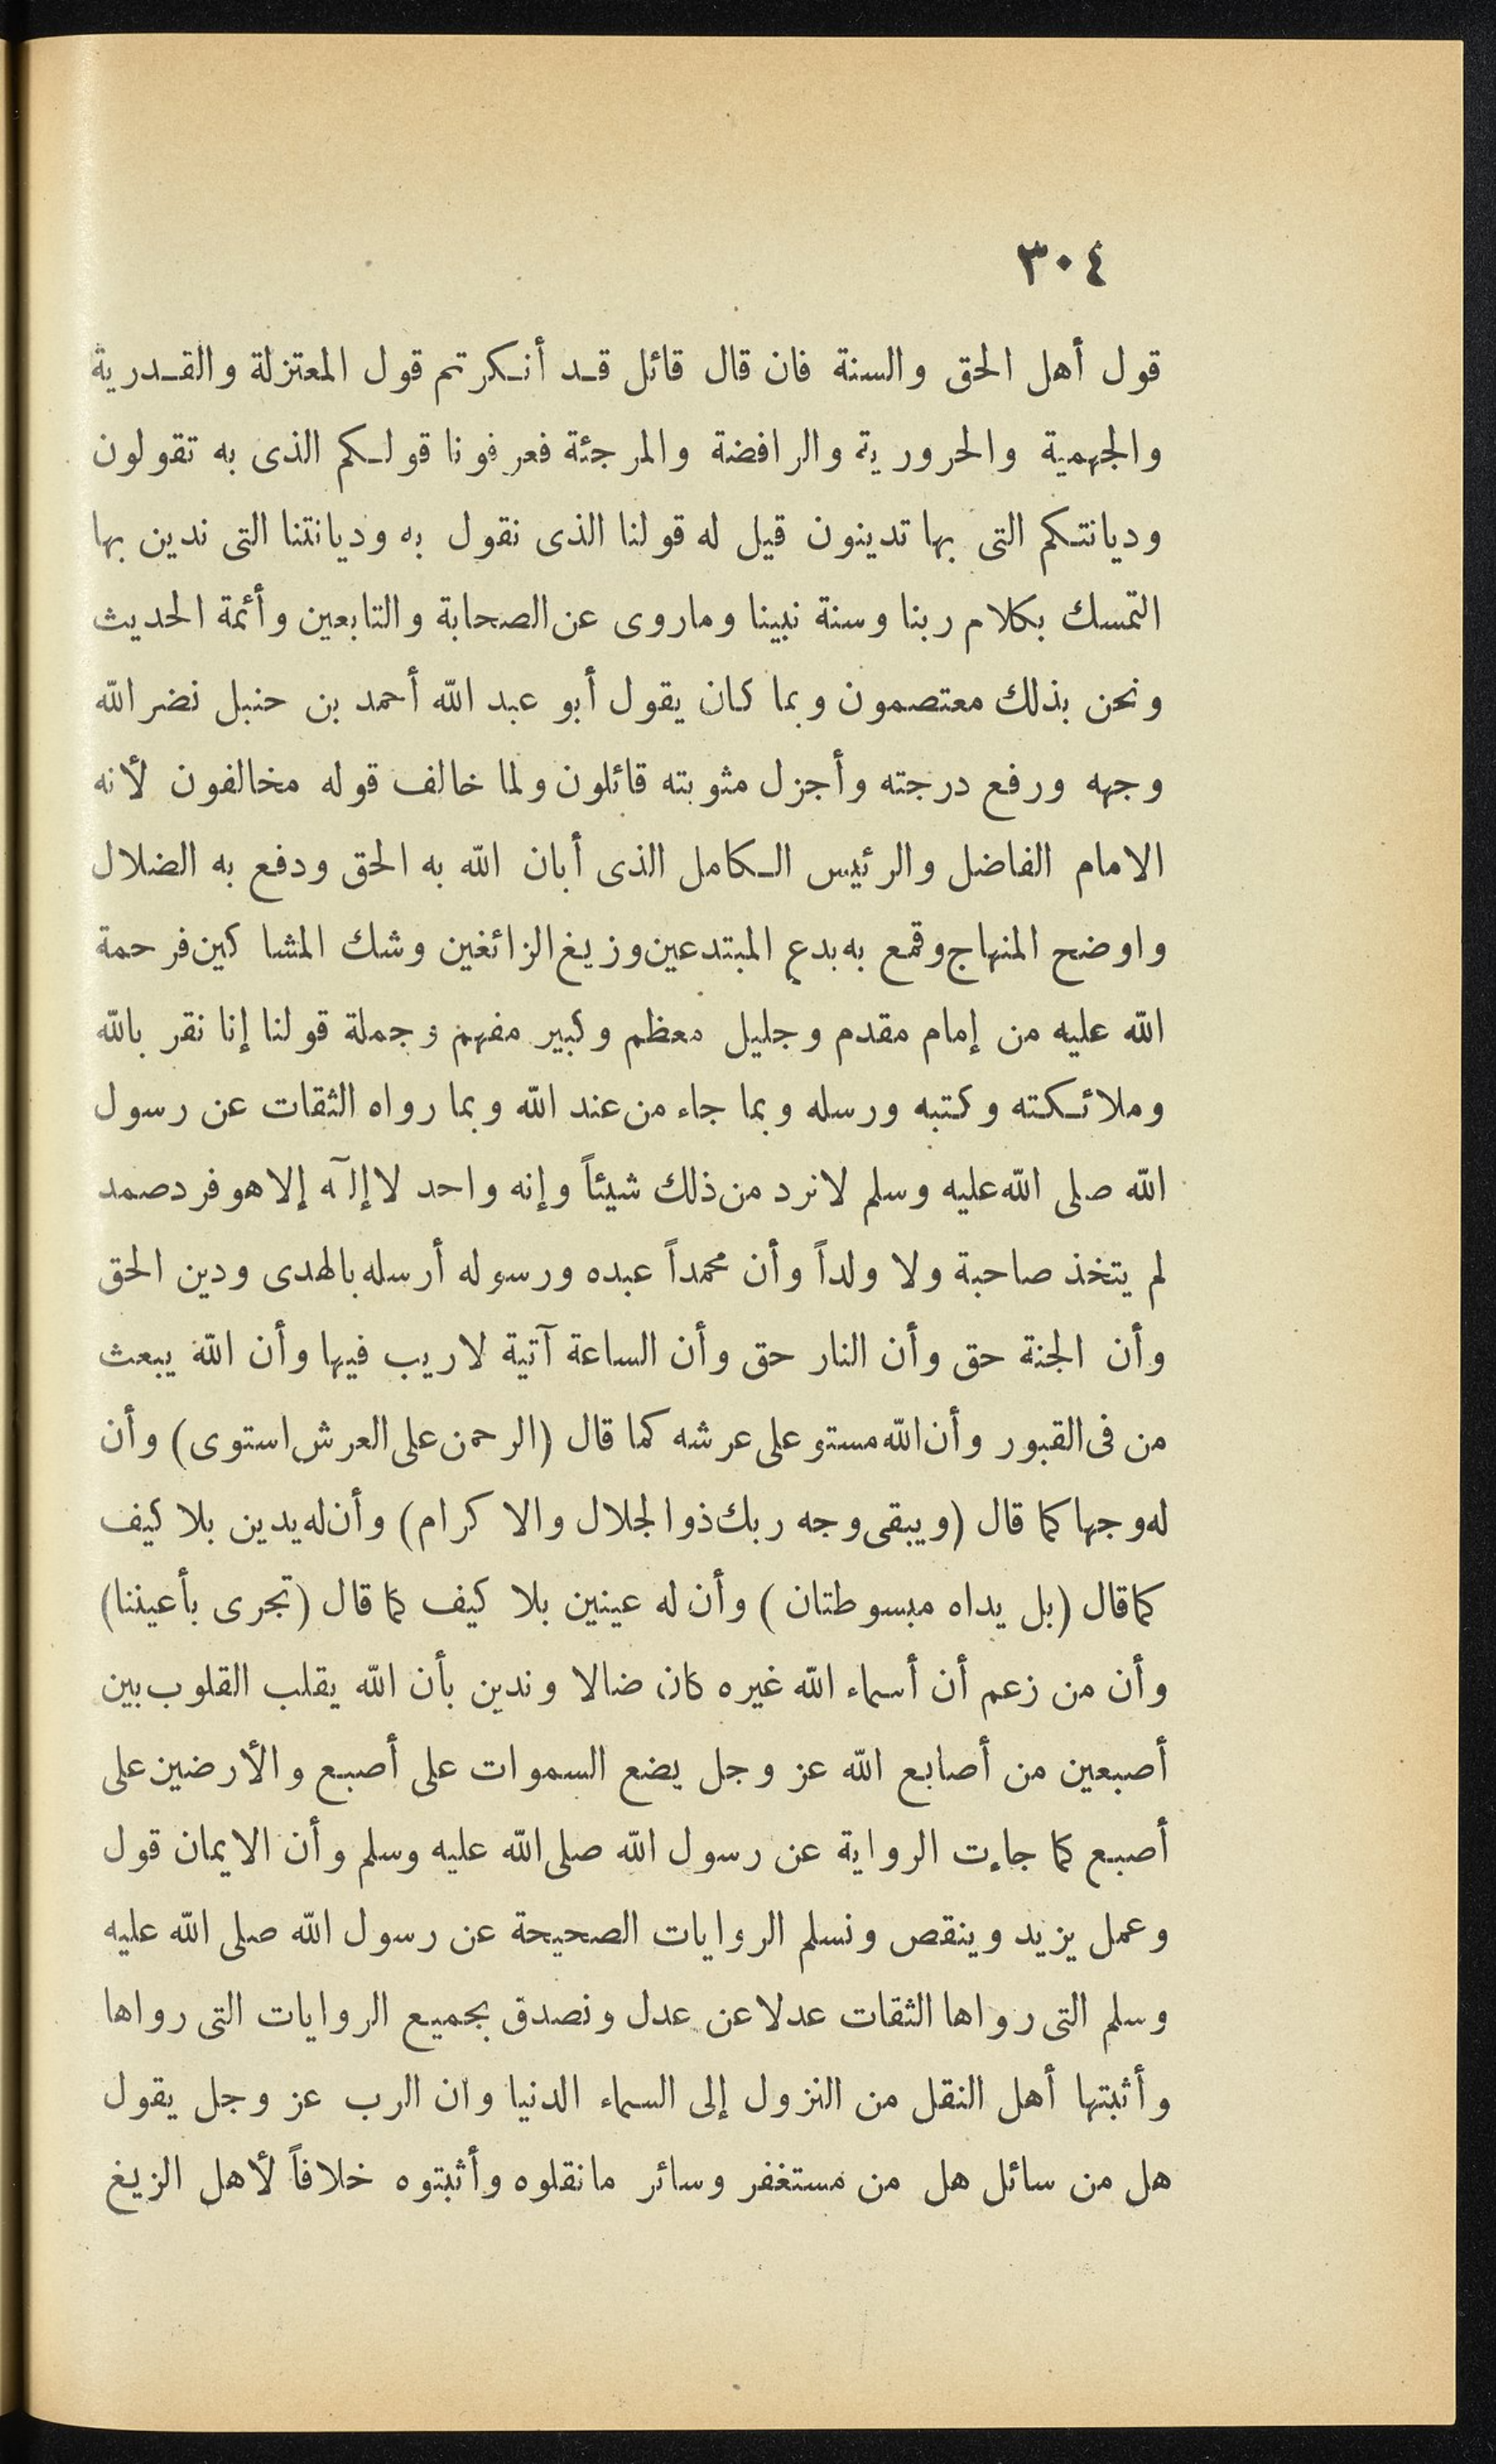 ٣٠٤
قول أهل الحق والسنة فان قال قائل قد أنكرتم قول المعتزلة والقدرية
والجهمية والحرورية والرافضة والمرجئة فعرفونا قولكم الذى به تقولون
وديانتكم التى بها تدينون قيل له قولنا الذى نقول به وديانتنا التى ندين بها
التمسك بكلام ربنا وسنة نبينا وماروى عن الصحابة والتابعين وأئمة الحديث
ونحن بذلك معتصمون وبما كان يقول أبو عبد الله أحمد بن حنبل نضر الله
وجهه ورفع درجته وأجزل مثوبته قائلون ولما خالف قوله مخالفون لأنه
الامام الفاضل والرئيس الكامل الذى أبان الله به الحق ودفع به الضلال
واوضح المنهاج وقمع به بدع المبتدعين وزيغ الزائغين وشك المشاكين فرحمة
الله عليه من إمام مقدم وجليل معظم وكبير مفهم وجملة قولنا إنا نقر بالله
وملائكته وكتبه ورسله وبما جاء من عند الله وبما رواه الثقات عن رسول
الله صلى الله عليه وسلم لانرد من ذلك شيئاً وإنه واحد لا إلٓه إلا هو فرد صمد
لم يتخذ صاحبة ولا ولداً وأن محمداً عبده ورسوله أرسله بالهدى ودين الحق
وأن الجنة حق وأن النار حق وأن الساعة آتية لاريب فيها وأن الله يبعث
من فى القبور وأن الله مستو على عرشه كما قال (الرحمن على العرش استوى) وأن
له وجها كما قال (ويبقى وجه ربك ذو الجلال والاكرام) وأن له يدين بلا كيف
كما قال (بل يداه مبسوطتان) وأن له عينين بلا كيف كما قال (تجرى بأعيننا)
وأن من زعم أن أسماء الله غيره كان ضالا وندين بأن الله يقلب القلوب بين
أصبعين من أصابع الله عز وجل يضع السموات على أصبع والأرضين على
أصبع كما جاءت الرواية عن رسول الله صلى الله عليه وسلم وأن الايمان قول
وعمل يزيد وينقص ونسلم الروايات الصحيحة عن رسول الله صلى الله عليه
وسلم التى رواها الثقات عدلا عن عدل ونصدق بجميع الروايات التى رواها
وأثبتها أهل النقل من النزول إلى السماء الدنيا وان الرب عز وجل يقول
هل من سائل هل من مستغفر وسائر مانقلوه وأثبتوه خلافاً لأهل الزيغ